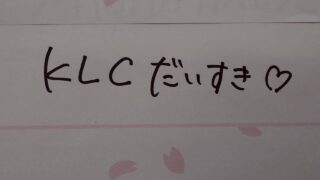 KLCだいすき♡